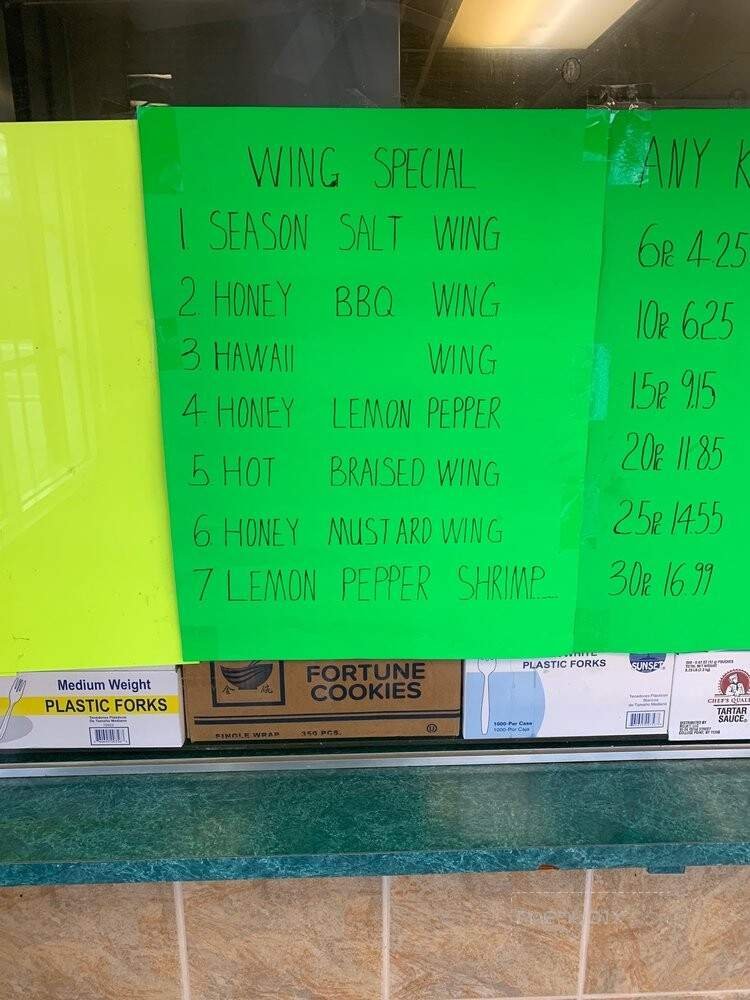 WING SPECIAL
1 SEASON SALT WING
2. HONEY BBQ WING
3 HAWAII WING
4 HONEY LEMON PEPPER
5 HOT BRAISED WING
6. HONEY MUSTARD WING
7 LEMON PEPPER SHRIMP
ANY K
6PC 4.25
10PC 6.25
15PC 9.15
20PC 11.85
25PC 14.55
30PC 16.99
Medium Weight
PLASTIC FORKS
FORTUNE
COOKIES
SINGLE WRAP 350 PCS.
WHITE
PLASTIC FORKS
SUNSET
1000-Per Case
1000-Por Caja
CHEF'S QUALI
TARTAR
SAUCE